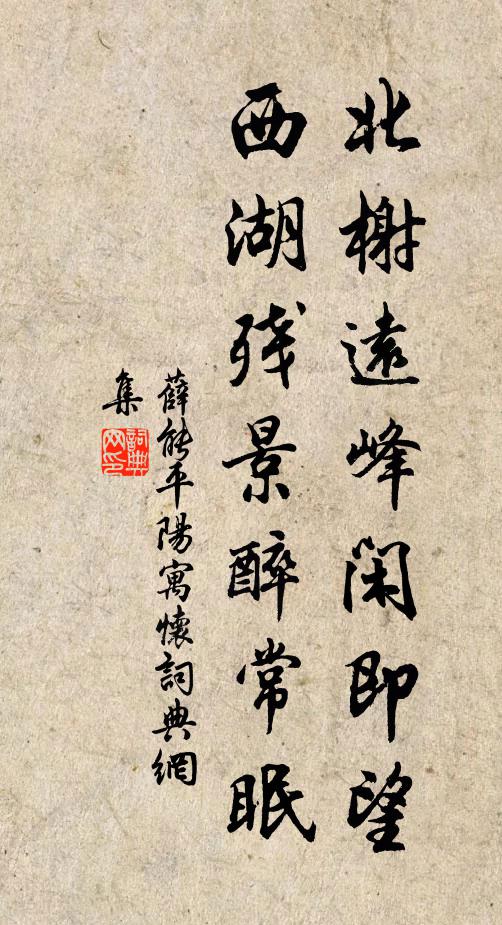 北榭遠峰閑即望
西湖残景醉常眠
薛能平陽寓懷詞典網
集
詞典
网印